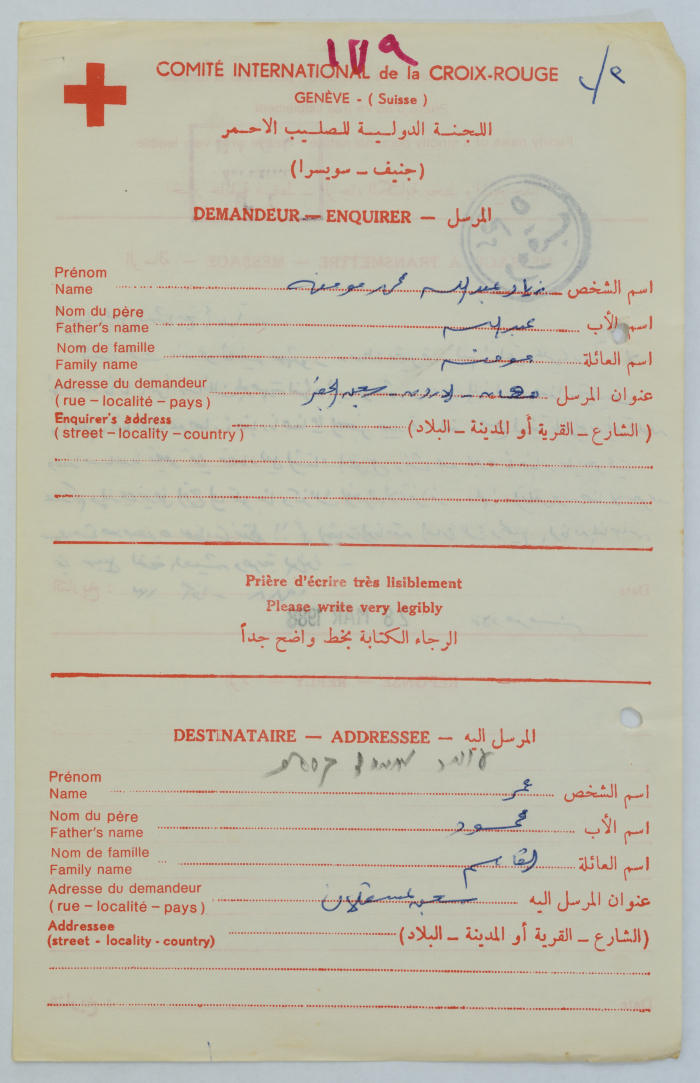 ١٧٩
COMITÉ INTERNATIONAL de la CROIX-ROUGE
GENÈVE - ( Suisse )
اللجنة الدولية للصليب الاحمر
(جنيف ـ سويسرا)
DEMANDEUR — ENQUIRER — المرسل
Prénom
Name زياد عبد الله محمد مومنه اسم الشخص
Nom du père
Father's name عبد الله اسم الأب
Nom de famille
Family name مومنه اسم العائلة
Adresse du demandeur
(rue – localité – pays) الاردن - سجن الجفر عنوان المرسل
Enquirer's address
(street – locality – country) (الشارع ـ القرية أو المدينة ـ البلاد)
Prière d'écrire très lisiblement
Please write very legibly
الرجاء الكتابة بخط واضح جداً
28 MAR 1988
DESTINATAIRE — ADDRESSEE — المرسل اليه
עומר מחמוד קאסם
Prénom
Name عمر اسم الشخص
Nom du père
Father's name محمود اسم الأب
Nom de famille
Family name القاسم اسم العائلة
Adresse du demandeur
(rue – localité – pays) سجن عسقلان عنوان المرسل اليه
Addressee
(street - locality - country) (الشارع ـ القرية أو المدينة ـ البلاد)